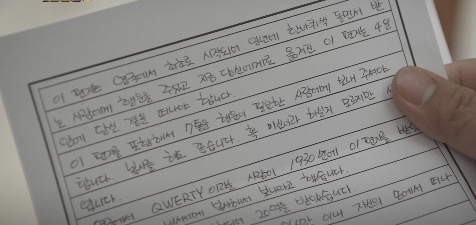 이 편지는 영국에서 최초로 시작되어 일년에 한바퀴씩 돌면서 받
는 사람에게 행운을 주었고 지금 당신에게로 옮겨진 이 편지는 4일
안에 당신 곁을 떠나야 합니다.
이 편지를 포함해서 7통을 행운이 필요한 사람에게 보내 주셔야
합니다. 복사를 해도 좋습니다. 혹 미신이라 하실지 모르지만 사
영국에서 QWERTY 이라는 사람이 1930년에 이 편지를 받
비서에게 복사해서 보내라고 했습니다.
20억을 받았습니다.
이내 자신의 손에서 떠나